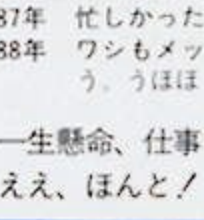 87年 忙しかった
88年 ワシもメッ
う、うほほ
一生懸命、仕事
ええ、ほんと!